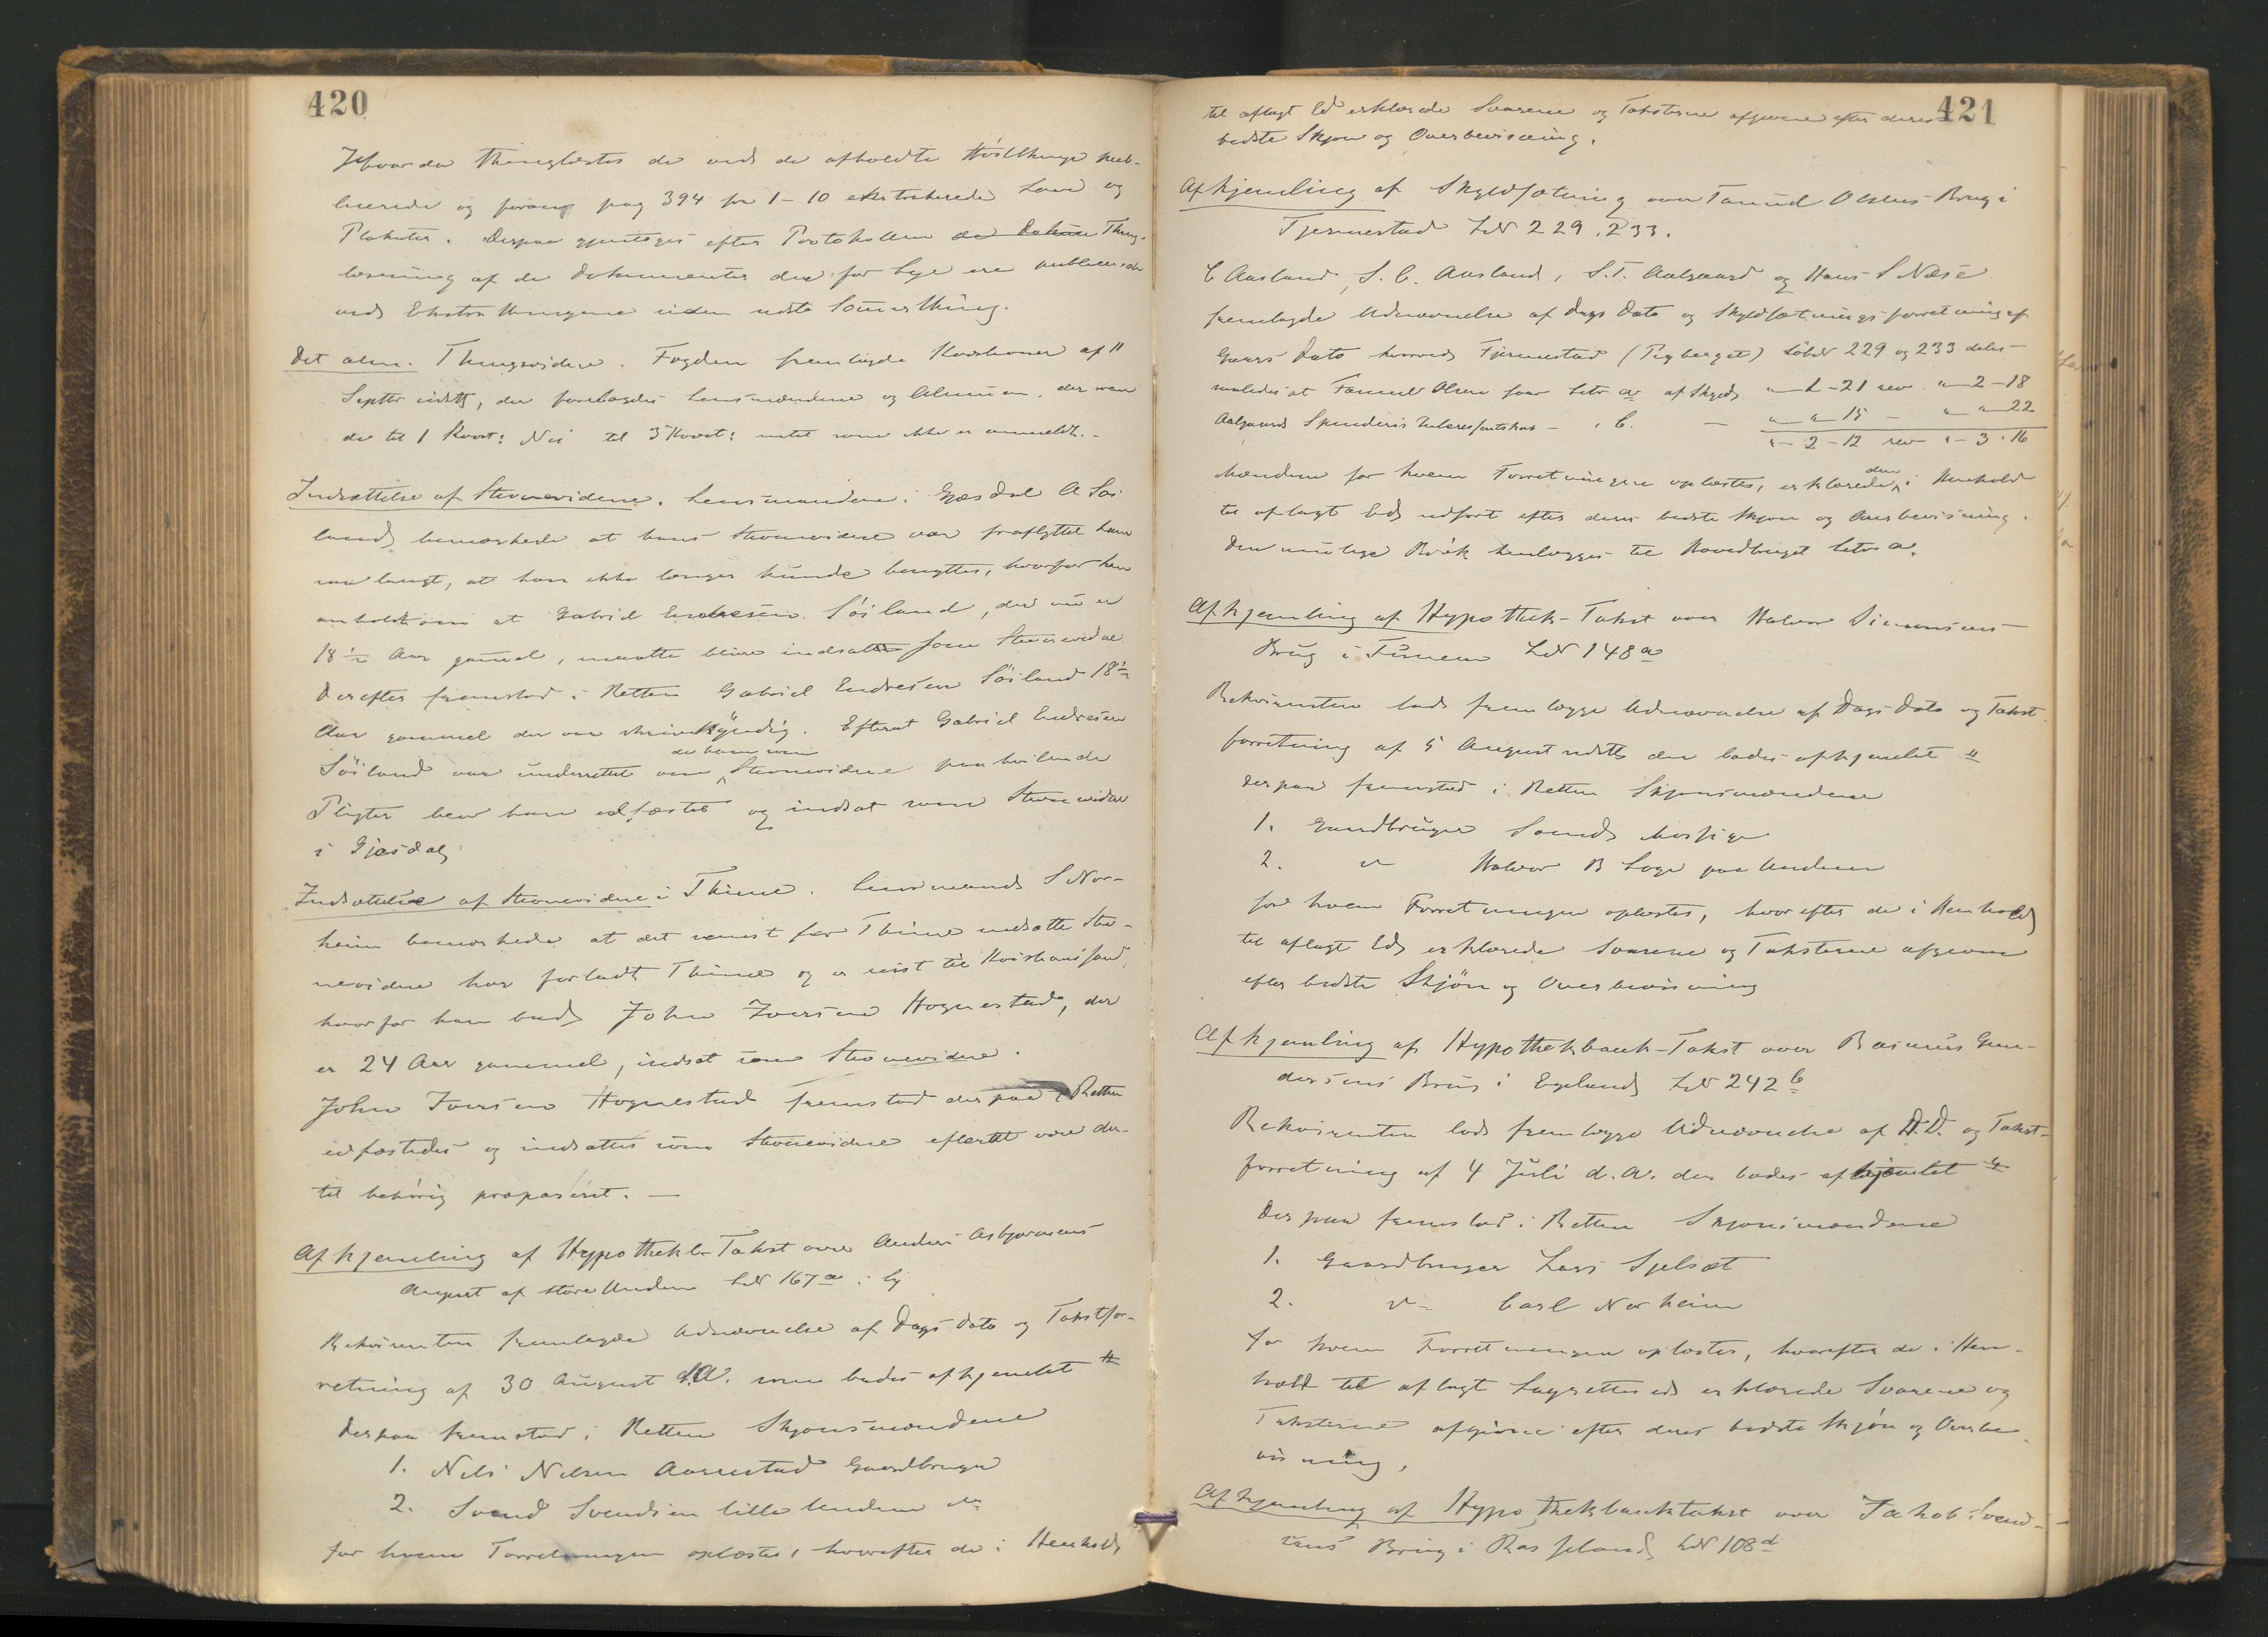 420
Hvorda thinglæstes de ved de afholdte Høstthinge pub-
licerede og foran pag 394 fra 1-10 ekstraherede Love og
Plakater. Derpaa gjentoges efter Protokollen de Dokum Thing-
læsning af de Dokumenter der for Lye ere publicerede
ved Ekstrathingene siden sidste Sommerthing.
Det alm. Thingsvidne. Fogden fremlagde Kvæstioner af 11
Septbr sidstl, der forelagdes Lensmændene og Almuen, der svare
de til 1 Kvæst: Nei til 3 Kvæst: intet som ikke er anmeldt. -
Indsættelse af Stevnevidne. Lensmanden i Gjesdal A Søi
land bemærkede at hans Stevnevidne var fraflyttet ham
saa langt, at han ikke længer kunde benyttes, hvorfor han
anholdt om at Gabriel Endresen Söiland, der nu er
18½ Aar gammel, maatte blive indsatte som Stevnevidne
Derefter fremstod i Retten Gabriel Endresen Söiland 18½
Aar gammel der var skrivekyndig. Efterat Gabriel Endresen
Söiland var underrettet om de ham som Stevnevidne paahvilende
Pligter blev han edfæstet og indsat som Stevnevidne
i Gjesdal
Indsættelse af Stevnevidne i Thime. Lensmand S Nor-
heim bemærkede at det senest for Thime indsatte Stev-
nevidne har forladt Thime og er reist til Kristiansand,
hvorfor han bad John Iversen Hognestad, der
er 24 Aar gammel, indsat som Stevnevidne.
John Iversen Hognestad fremstod derpaa i Retten
edfæstedes og indsattes som Stevnevidne efterat være der-
til behörig præpareret. -
Afhjemling af Hypotheksb Takst over Anders Asbjørnsens
August af store Undem LN 167 a i Ly
Rekvirenten fremlagde Udnævnelse af Dags Dato og Takstfor-
retning af 30 August d.A. som bades afhjemlet #
Derpaa fremstod i Retten Skjønsmændene
1. Nels Nilsen Aarrestad Gaardbruger
2. Svend Svendsen lille Undem do
for hvem Forretningen oplæstes, hvorefter de i Henhold
421
til aflagt Ed erklærede Svarene og Taksterne afgivne efter deres
bedste Skjøn og Overbevisning.
Afhjemling af Skyldsætning over Tønned Olsens Brug i
Fjermestad LN 229. 233.
C Aasland, S. C. Aasland, S. T. Aalgaard og Hans S Næse
fremlagde Udnævnelse af Dags Dato og Skyldsætningsforretning af
Gaars Dato hvorved Fjermestad (Pigberget) LöbN 229 og 233 deles
saaledes at Tønned Olsen faar Litr a af Skyld " 1 - 21 rev " 2 - 18
Aalgaards Spinderis Interessentskab - " b. - " " 15 - " " 22
" - 2 - 12 rev " - 3 - 16
Mændene for hvem Forretningen oplæstes, erklærede den i Henhold
til aflagt Ed udført efter deres bedste Skjøn og Overbevisning.
Den mulige Brøk henlægges til Hovedbruget litr a.
Afhjemling af Hypothek-Takst over Halvor Simonsens
Brug i Tunem LN 148 a
Rekvirenten lod fremlægge Udnævnelse af Dags Dato og Takst
forretning af 5 August sidstl der bades afhjemlet #
Derpaa fremstod i Retten Skjønsmændene
1. Gaardbruger Svend Mossige
2. do Halvor B Loge paa Undem
for hvem Forretningen oplæstes, hvorefter de i Henhold
til aflagt Ed erklærede Svarene og Taksterne afgivne
efter bedste Skjön og Overbevisning
Afhjemling af Hypothekbank-Takst over Rasmus Gun-
dersens Brug i Egeland LN 242 b
Rekvirenten lod fremlægge Udnævnelse af D.D. og Takst-
forretning af 4 Juli d. A. der bades afhjemlet #
Derpaa fremstod i Retten Skjönsmændene
1. Gaardbruger Lars Sjelset
2. do Carl Norheim
for hvem Forretningen oplæstes, hvorefter de i Hen-
hold til aflagt Lagrettesed erklærede Svarene og
Taksterne afgivne efter deres bedste Skjön og Overbe
visning.
Afhjemling af Hypothekbanktakst over Jakob Svend-
sens Brug i Rosseland LN 108 d